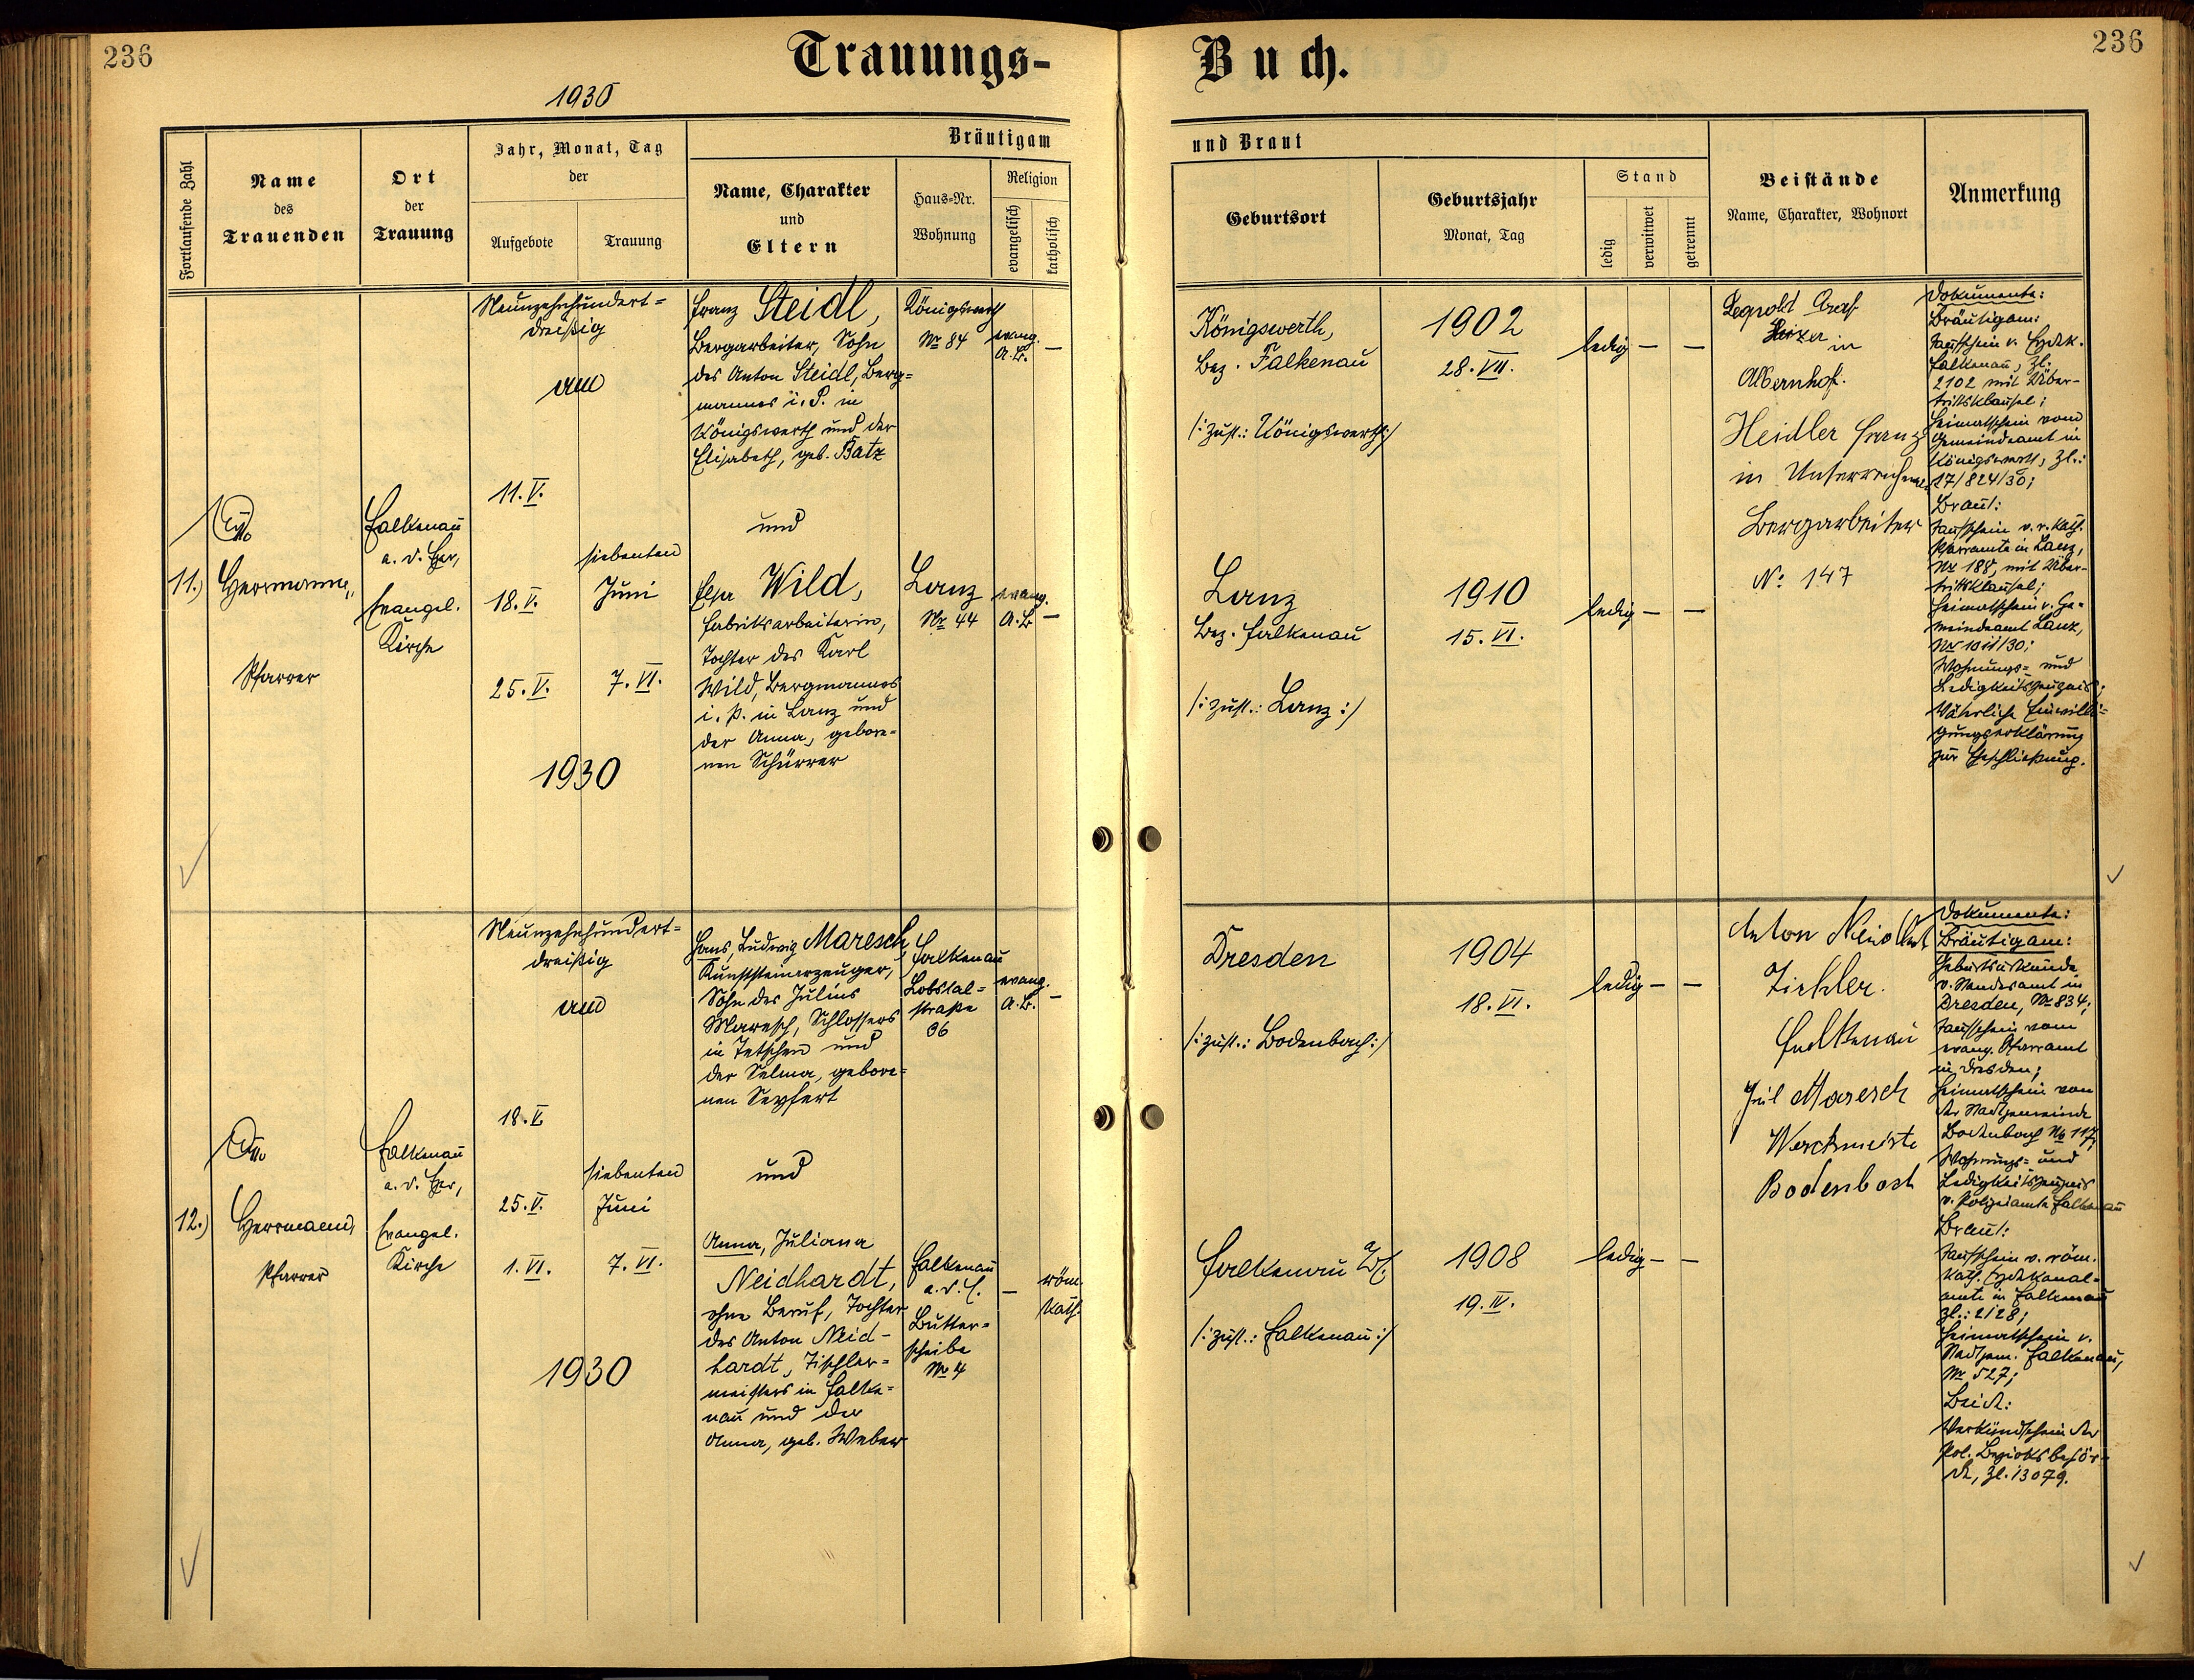 236
Trauungs-
Buch.
236
1930
Fortlaufende Zahl
Name
des
Trauenden
Ort
der
Trauung
Jahr, Monat, Tag
der
Aufgebote
Trauung
Bräutigam
und Braut
Name, Charakter
und
Eltern
Haus-Nr.
Wohnung
Religion
evangelisch
katholisch
Geburtsort
Geburtsjahr
Monat, Tag
Stand
ledig
verwitwet
getrennt
Beistände
Name, Charakter, Wohnort
Anmerkung
11.)
Herrmann,
Pfarrer
Falkenau
a. d. Eger,
Evangel.
Kirche
Neunzehnhundert=
dreißig
am
11. V.
18. V.
25. V.
siebenten
Juni
7. VI.
1930
Franz Steidl,
Bergarbeiter, Sohn
des Anton Steidl, Berg=
mannes i. P. in
Königswerth und der
Elisabeth, geb. Batz
und
Elsa Wild,
Fabriksarbeiterin,
Tochter des Karl
Wild, Bergmannes
i. P. in Lanz und
der Anna, gebore=
nen Schürrer
Königswerth
Nr 84
evang.
A. B.
—
Lanz
Nr 44
evang.
A. B.
—
Königswerth,
Bez. Falkenau
/: zust.: Königswerth :/
1902
28. VII.
ledig — —
Lanz
Bez. Falkenau
/: zust.: Lanz :/
1910
15. VI.
ledig — —
Leopold
Heizer in
Albernhof.
Heidler Franz
in
Bergarbeiter
No 147
Dokumente:
Bräutigam:
Taufschein v. Erzdek.
Falkenau, Zl.
2102 mit Über-
trittsklausel;
Heimatschein vom
Gemeindeamt in
Königswerth, Zl.:
17/824/30;
Braut:
Taufschein v. r. kath.
Pfarramte in Lanz,
Nr 188, mit Über-
trittsklausel;
Heimatschein v. Ge=
meindeamt Lanz,
Nr 1011/30;
Wohnungs= und
Ledigkeitszeugnis;
Väterliche Einwilli=
gungserklärung
zur Eheschließung.
12.)
Herrmann
Pfarrer
Falkenau
a. d. Eger,
Evangel.
Kirche
Neunzehnhundert=
dreißig
am
18. V.
25. V.
1. VI.
siebenten
Juni
7. VI.
1930
Hans, Ludwig Maresch,
Kunststeinerzeuger,
Sohn des Julius
Maresch, Schlossers
in Tetschen und
der Selma, gebore=
nen Seyfert
und
Anna, Juliana
Neidhardt,
ohne Beruf, Tochter
des Anton Neid-
hardt, Tischler=
meisters in Falke=
nau und der
Anna, geb. Weber
Falkenau
Lobstal=
straße
36
evang.
A. B.
—
Falkenau
a. d. E.
Butter=
scheibe
Nr 4
—
röm.
kath.
Dresden
/: zust.: Bodenbach :/
1904
18. VI.
ledig — —
Falkenau
/: zust.: Falkenau :/
1908
19. IV.
ledig — —
Anton Neidhart
Tischler.
Falkenau
Jul Maresch
Werkmeiste
Bodenbach
Dokumente:
Bräutigam:
Geburtsurkunde
v. Standesamt in
Dresden, Nr 834;
Taufschein vom
evang. Pfarramt
in Dresden;
Heimatschein von
der Stadtgemeinde
Bodenbach Nr 117;
Wohnungs= und
Ledigkeitszeugnis
v. Polizeiamte Falkenau
Braut:
Taufschein v. röm.
kath. Erzdekanal=
amte in Falkenau
Zl.: 2128;
Heimatschein v.
Stadtgem. Falkenau,
Nr 527;
Beide:
Verkündschein der
Pol. Bezirksbehör-
de, Zl. 13079.